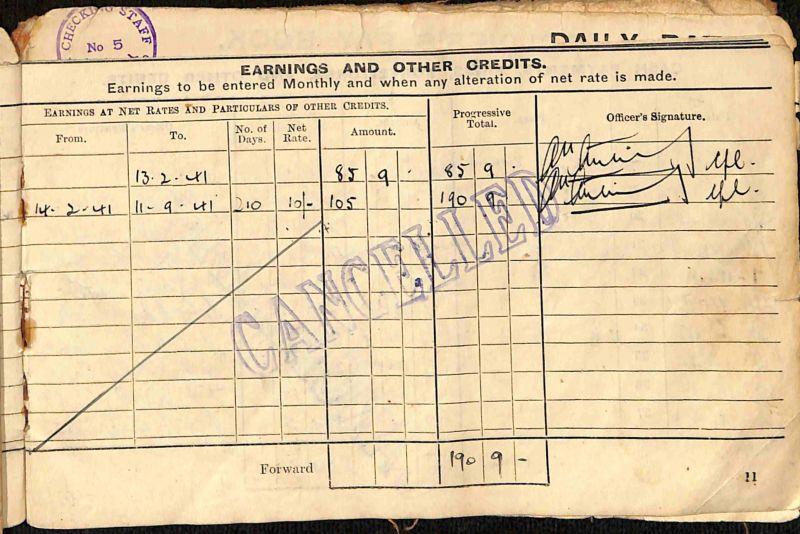 CHECKING STAFF
No 5
EARNINGS AND OTHER CREDITS.
Earnings to be entered Monthly and when any alteration of net rate is made.
EARNINGS AT NET RATES AND PARTICULARS OF OTHER CREDITS.
Progressive Total.
Officer's Signature.
From. To. No. of Days. Net Rate. Amount.
13.2.41 85 9 . 85 9 .
14.2.41 11.9.41 210 10/- 105 190 9 .
CANCELLED
Forward 190 9 -
11